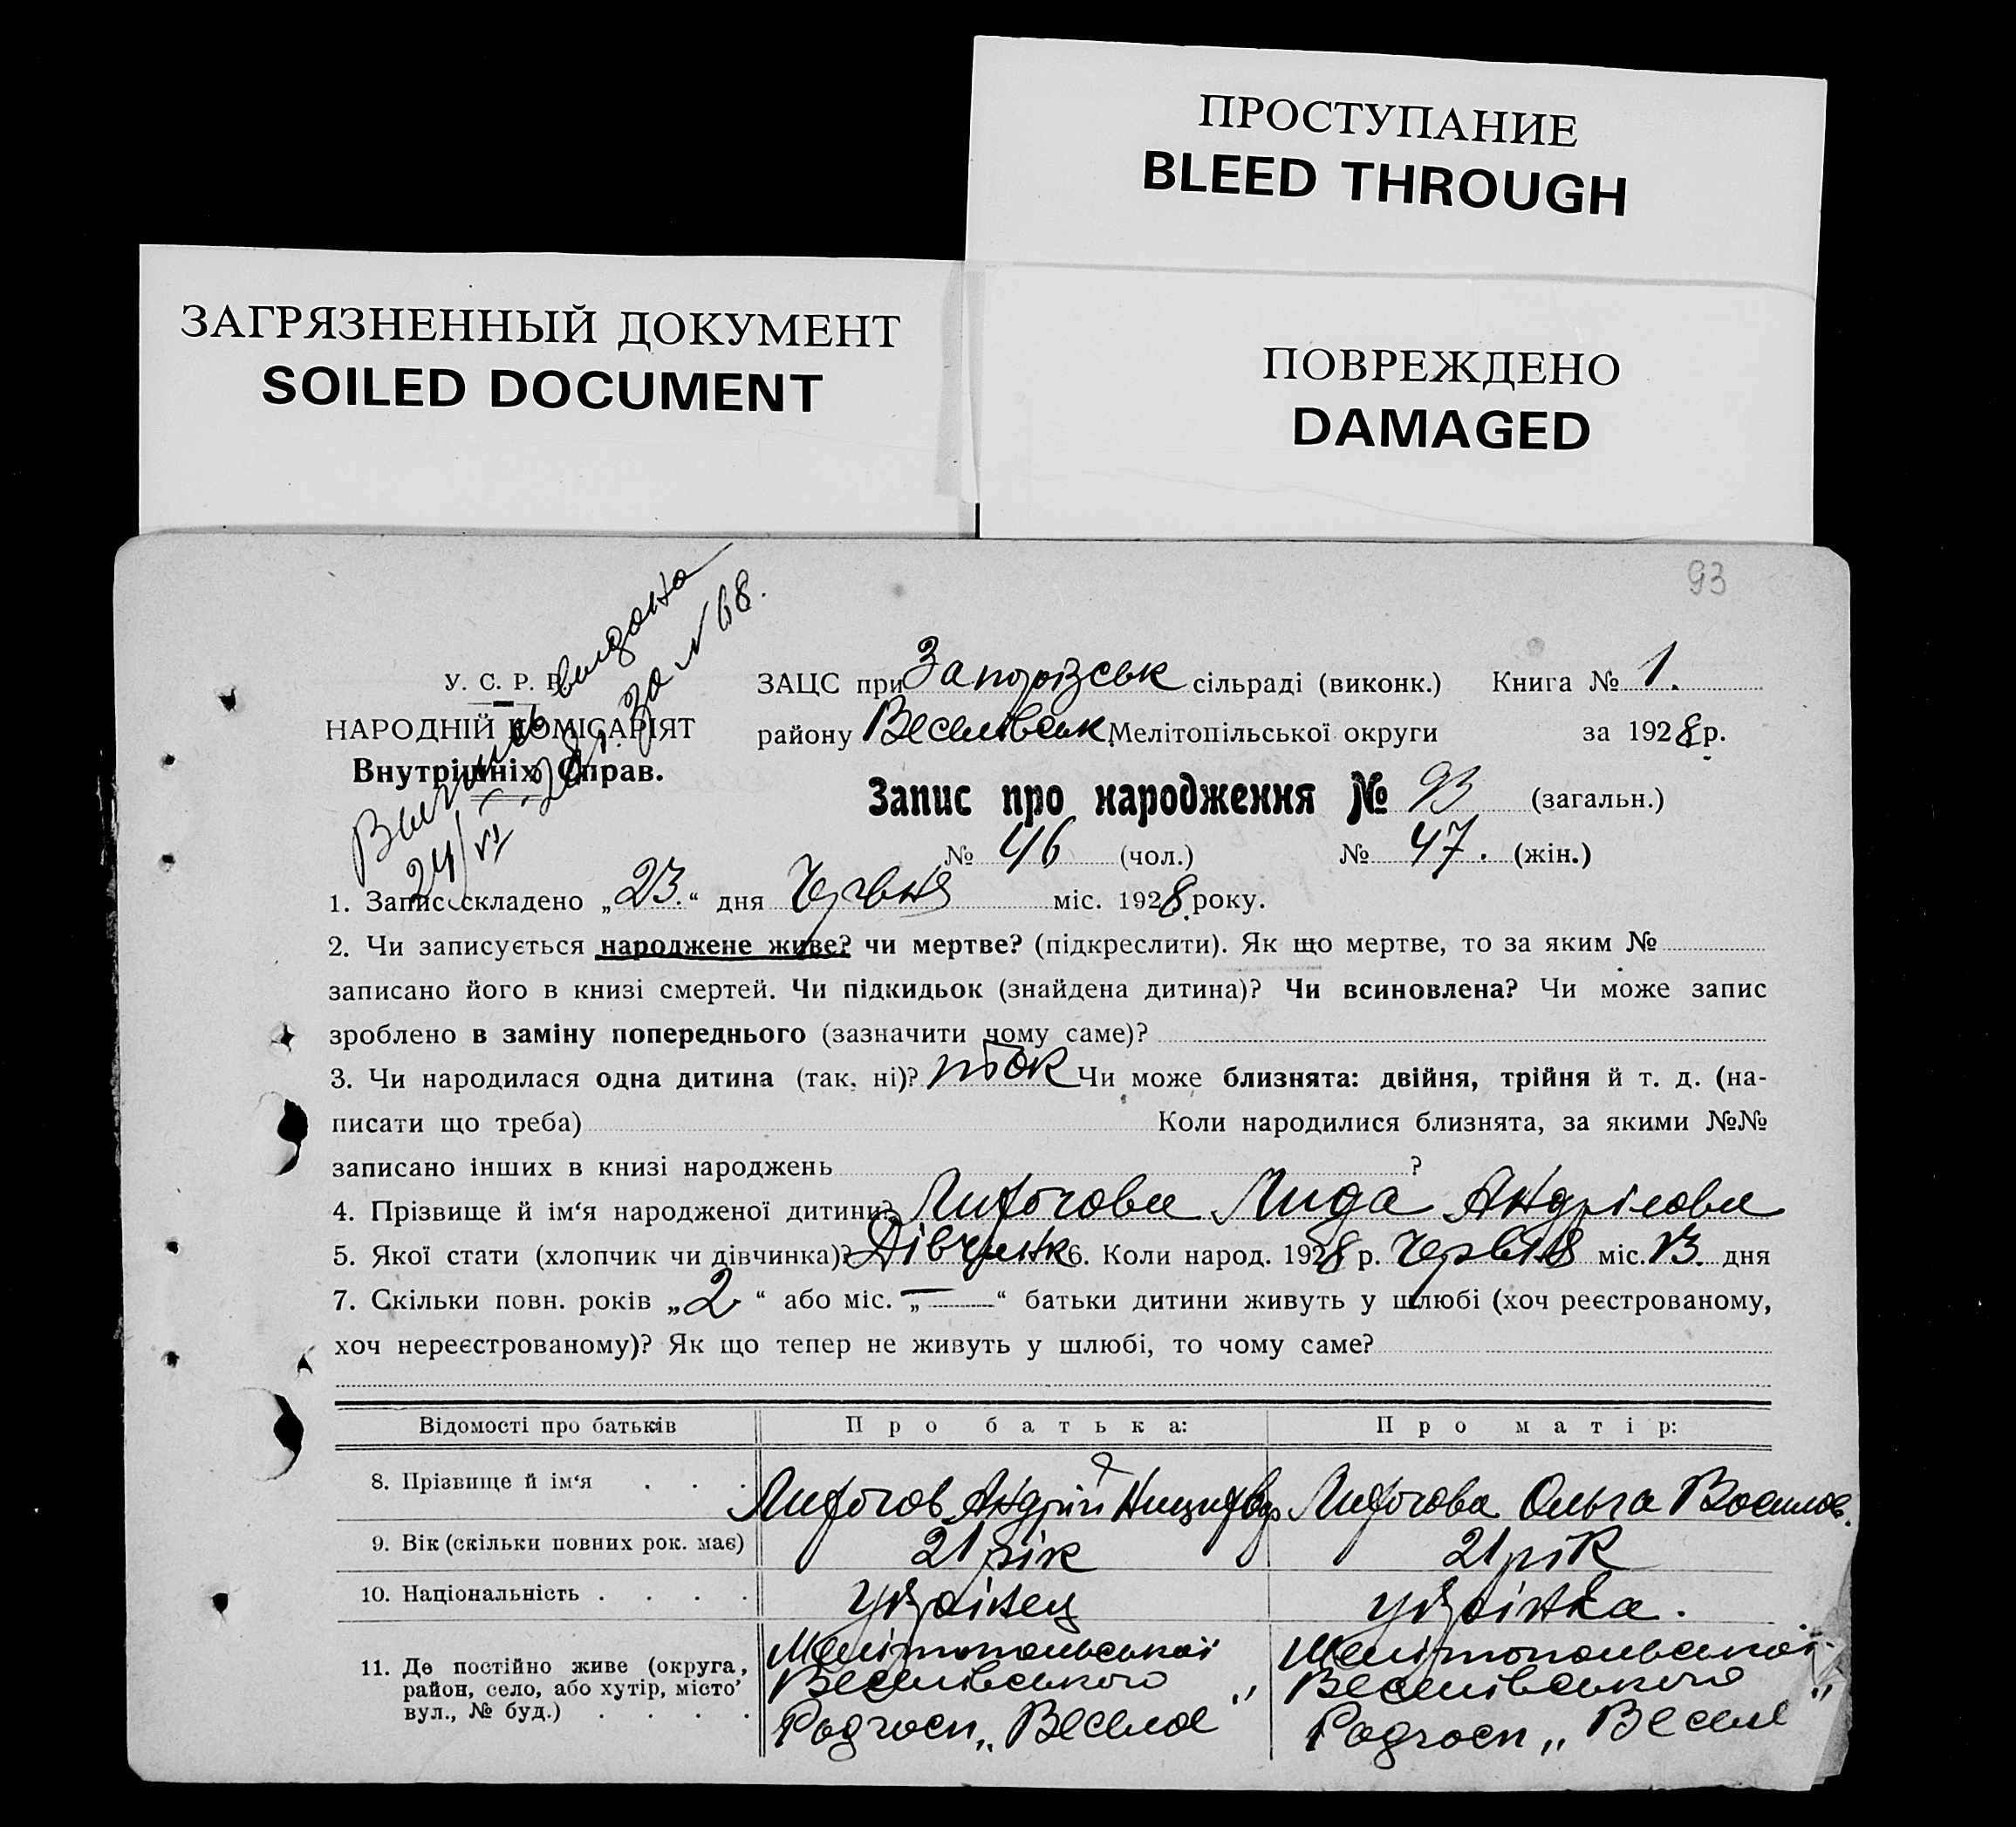 ПРОСТУПАНИЕ
BLEED THROUGH
ЗАГРЯЗНЕННЫЙ ДОКУМЕНТ
SOILED DOCUMENT
ПОВРЕЖДЕНО
DAMAGED
93
видана
24/VI 28 р. за № 68.
У. С. Р. Р.
НАРОДНІЙ КОМІСАРІЯТ
Внутрішніх Справ.
ЗАЦС при Запорізськ сільраді (виконк.) Книга № 1.
району Веселівськ Мелітопільської округи за 1928 р.
Запис про народження № 93 (загальн.)
№ 46 (чол.) № 47. (жін.)
1. Запис складено „23.“ дня Червня міс. 1928 року.
2. Чи записується народжене живе? чи мертве? (підкреслити). Як що мертве, то за яким №
записано його в книзі смертей. Чи підкидьок (знайдена дитина)? Чи всиновлена? Чи може запис
зроблено в заміну попереднього (зазначити чому саме)?
3. Чи народилася одна дитина (так, ні)? так Чи може близнята: двійня, трійня й т. д. (на-
писати що треба) Коли народилися близнята, за якими №№
записано інших в книзі народжень ?
4. Прізвище й ім‘я народженої дитини? Лида
5. Якої стати (хлопчик чи дівчинка)? Дівчинк 6. Коли народ. 1928 р. Червня міс. 13. дня
7. Скільки повн. років „2“ або міс. „—“ батьки дитини живуть у шлюбі (хоч реєстрованому,
хоч нереєстрованому)? Як що тепер не живуть у шлюбі, то чому саме?
Відомості про батьків Про батька: Про матір:
8. Прізвище й ім‘я . . . Андрій Ольга
9. Вік (скільки повних рок. має) 21 рік 21 рік
10. Національність . . . . Українец Українка.
11. Де постійно живе (округа, Мелітопольської Мелітопольської
район, село, або хутір, місто’ Веселівського „ Веселівського „
вул., № буд.) . . . . Радгосп „ Веселое Радгосп „ Веселе